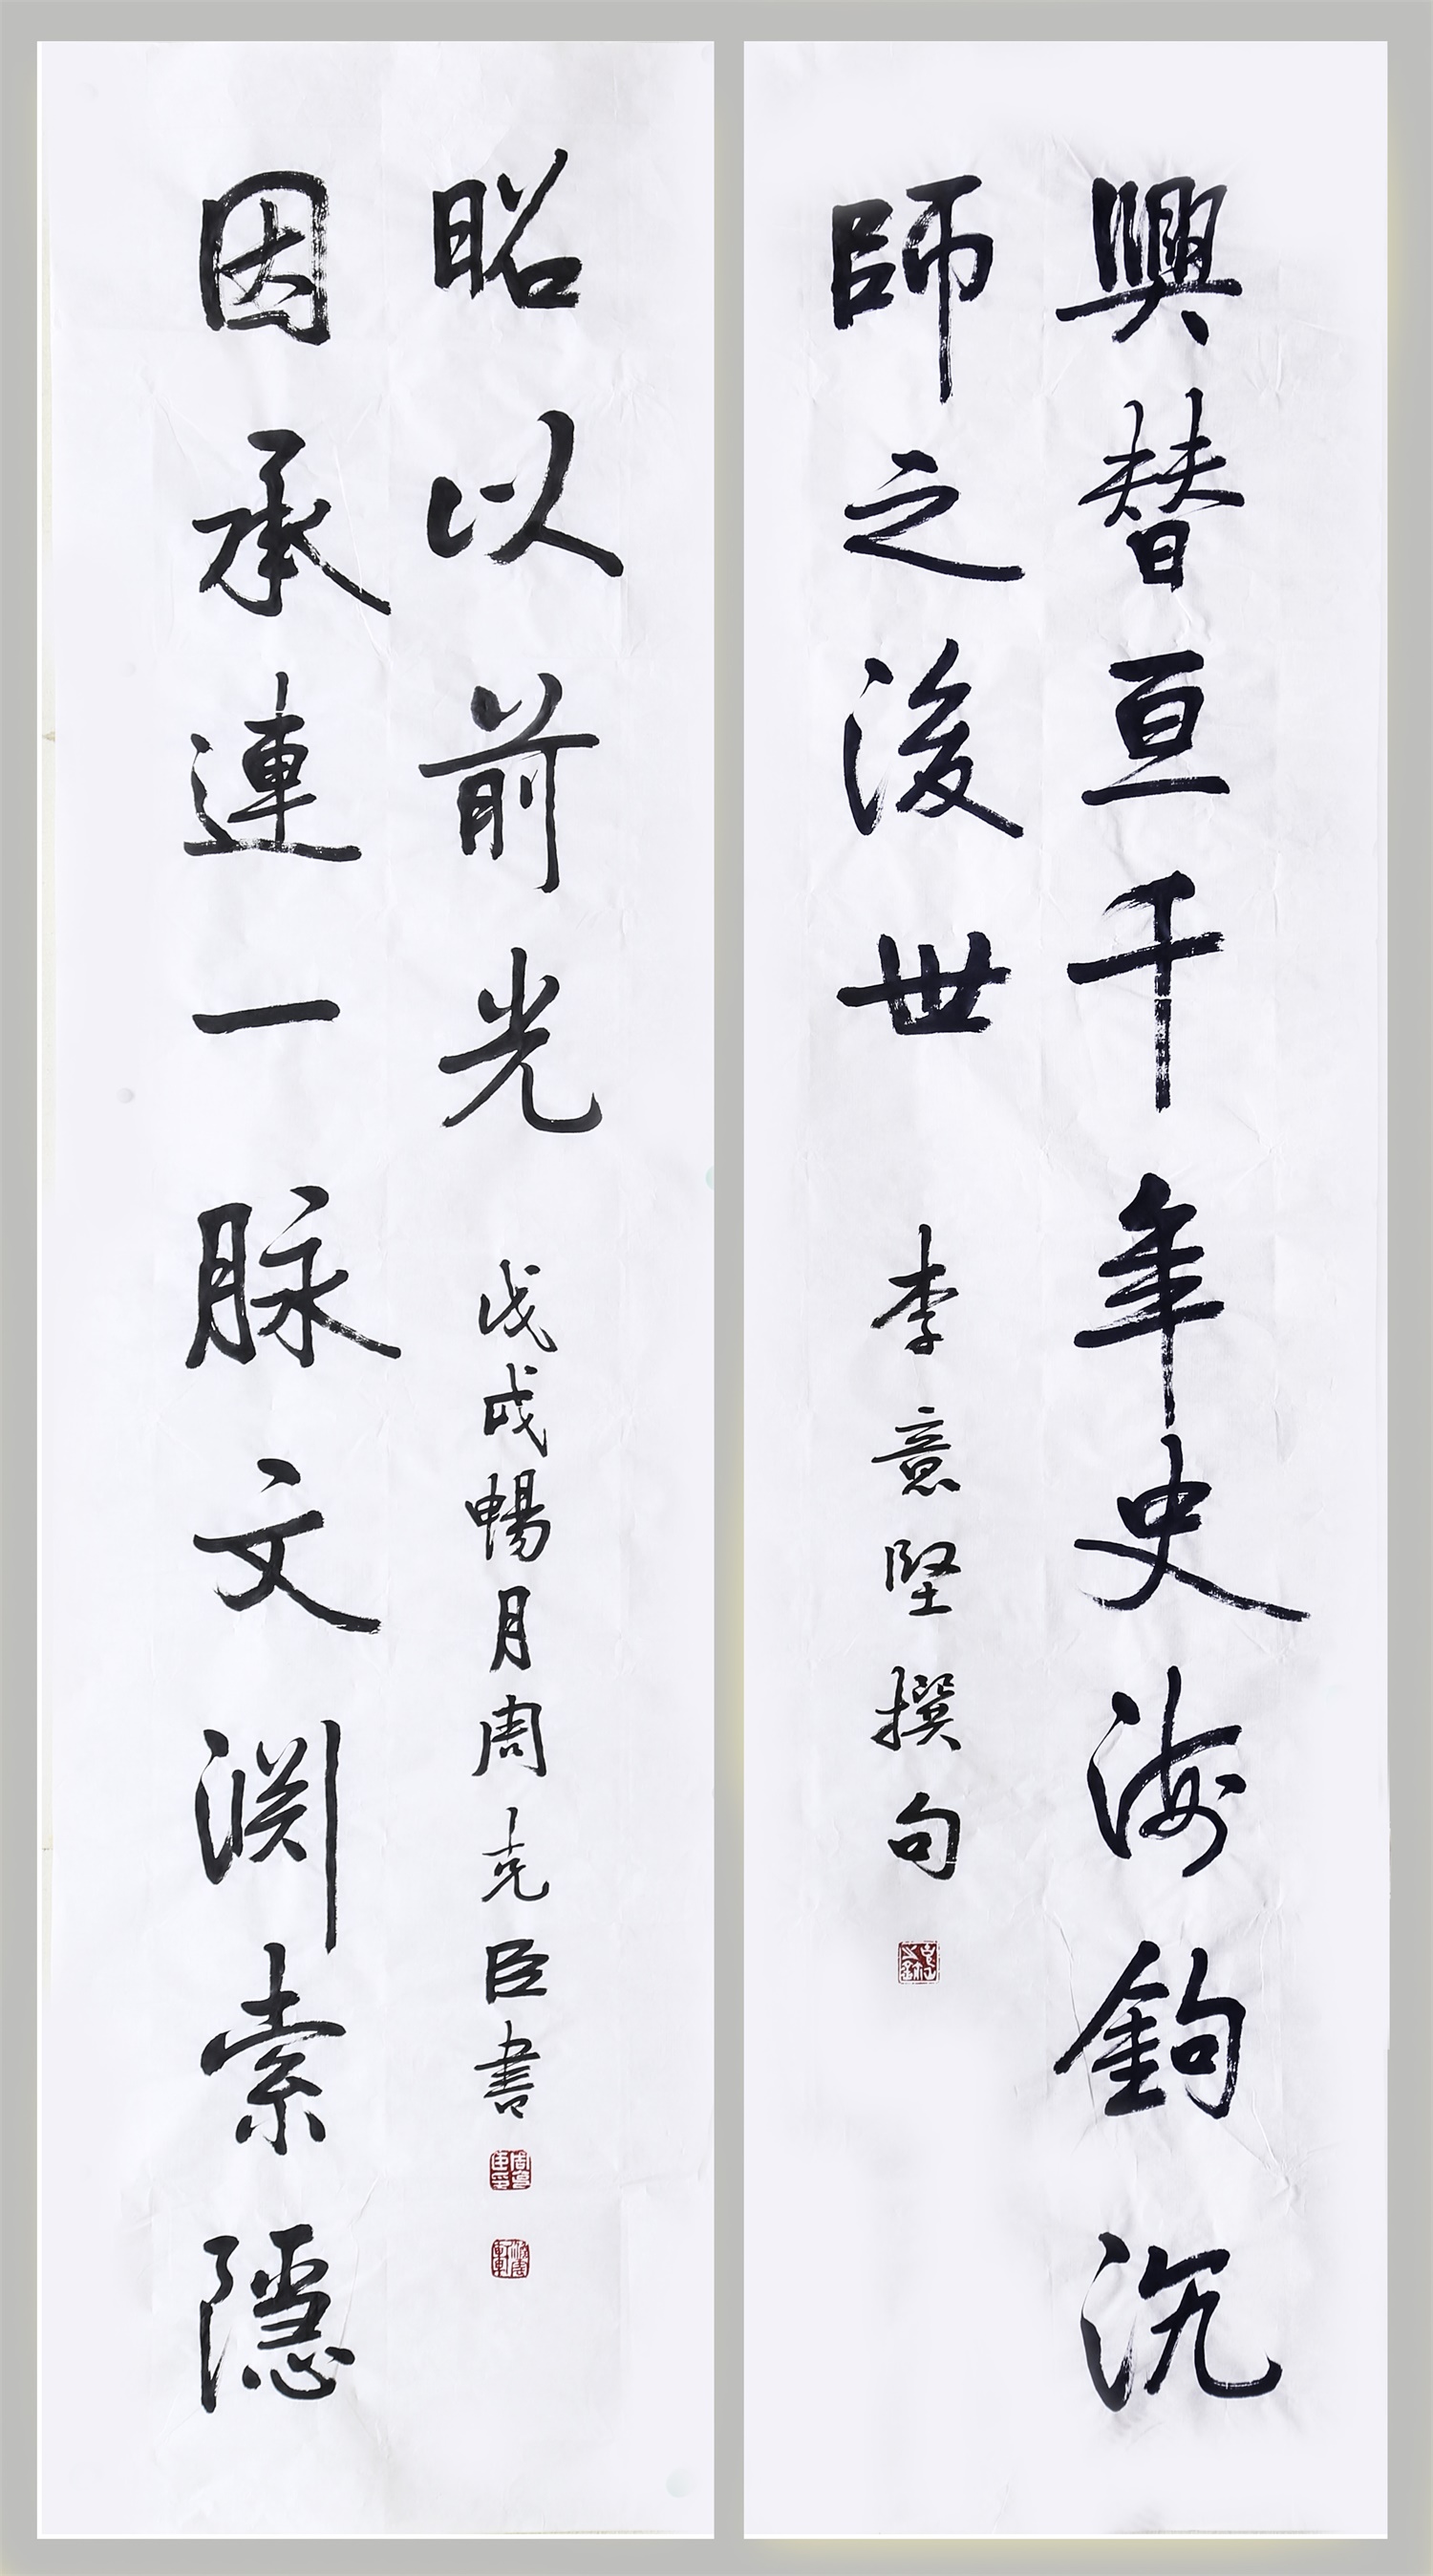 興替亘千年史海鉤沉
師之後世
李意堅撰句
因承連一脉文渊索隱
昭以前光
戊戌暢月周克臣書